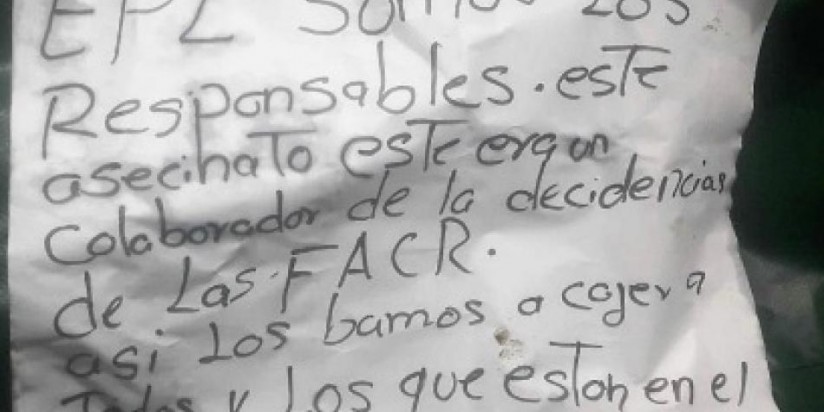 EPL Somos Los
Responsables. este
asecinato este era un
Colaborador de la decidencias
de Las FACR.
asi Los bamos a cojer a
Todos y los que estan en el